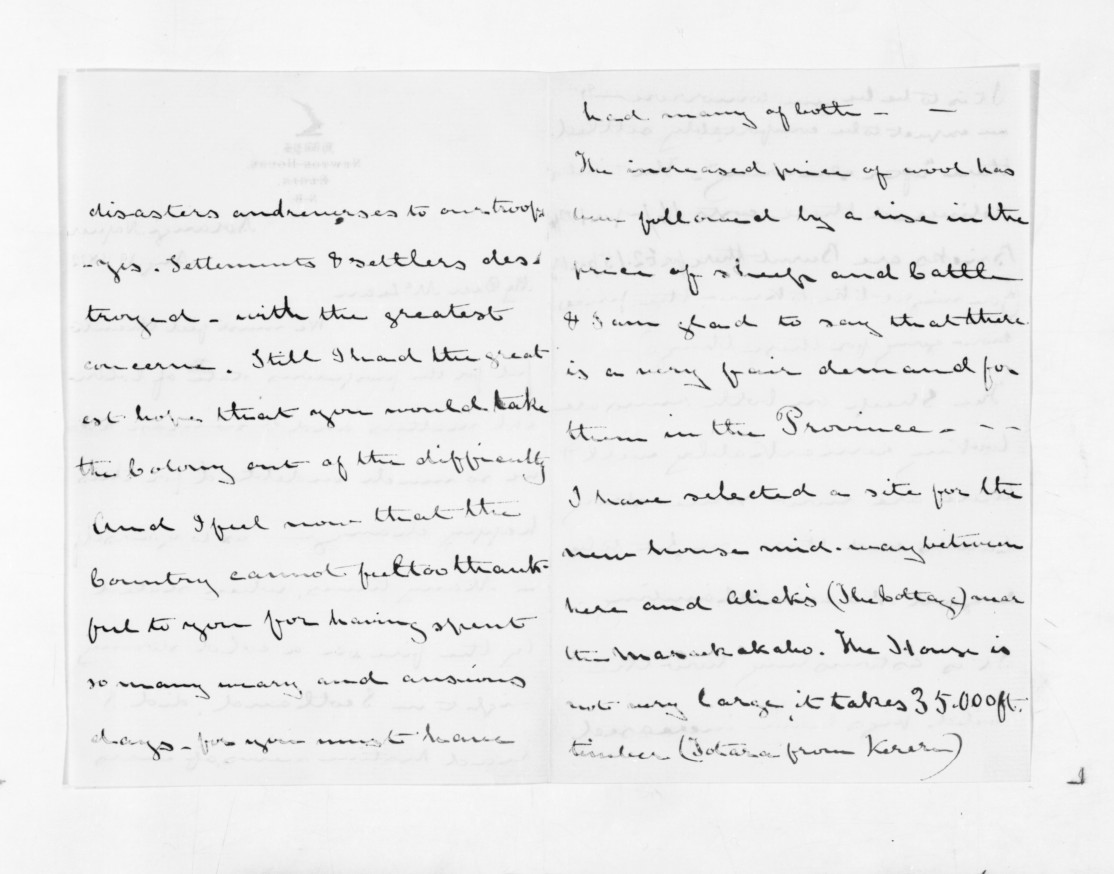 disasters and reverses to our troops
- yes. Settlements & settlers des-
troyed - with the greatest
concern. Still I had the great
est hope that you would take
the Colony out of the difficulty
And I feel now that the
Country cannot feel too thank-
ful to you for having spent
so many weary and anxious
days - for you must have
had many of both - -
The increased price of wool has
been followed by a rise in the
price of sheep and Cattle
& I am glad to say that there
is a very fair demand for
them in the Province - - -
I have selected a site for the
new house mid-way between
here and Alick's (The Cottage) near
the Maraekakaho. The House is
not very large, it takes 35.000 ft.
timber (Totara from Kereru)